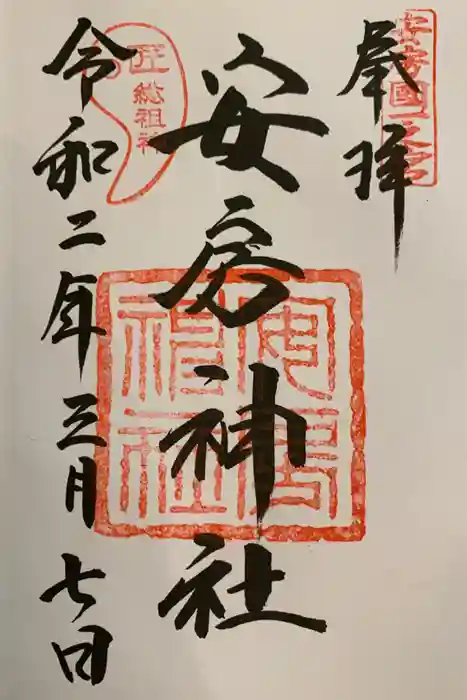 奉拝
安房國一之宮
安房神社
安房神社
匠総祖神
令和二年三月七日